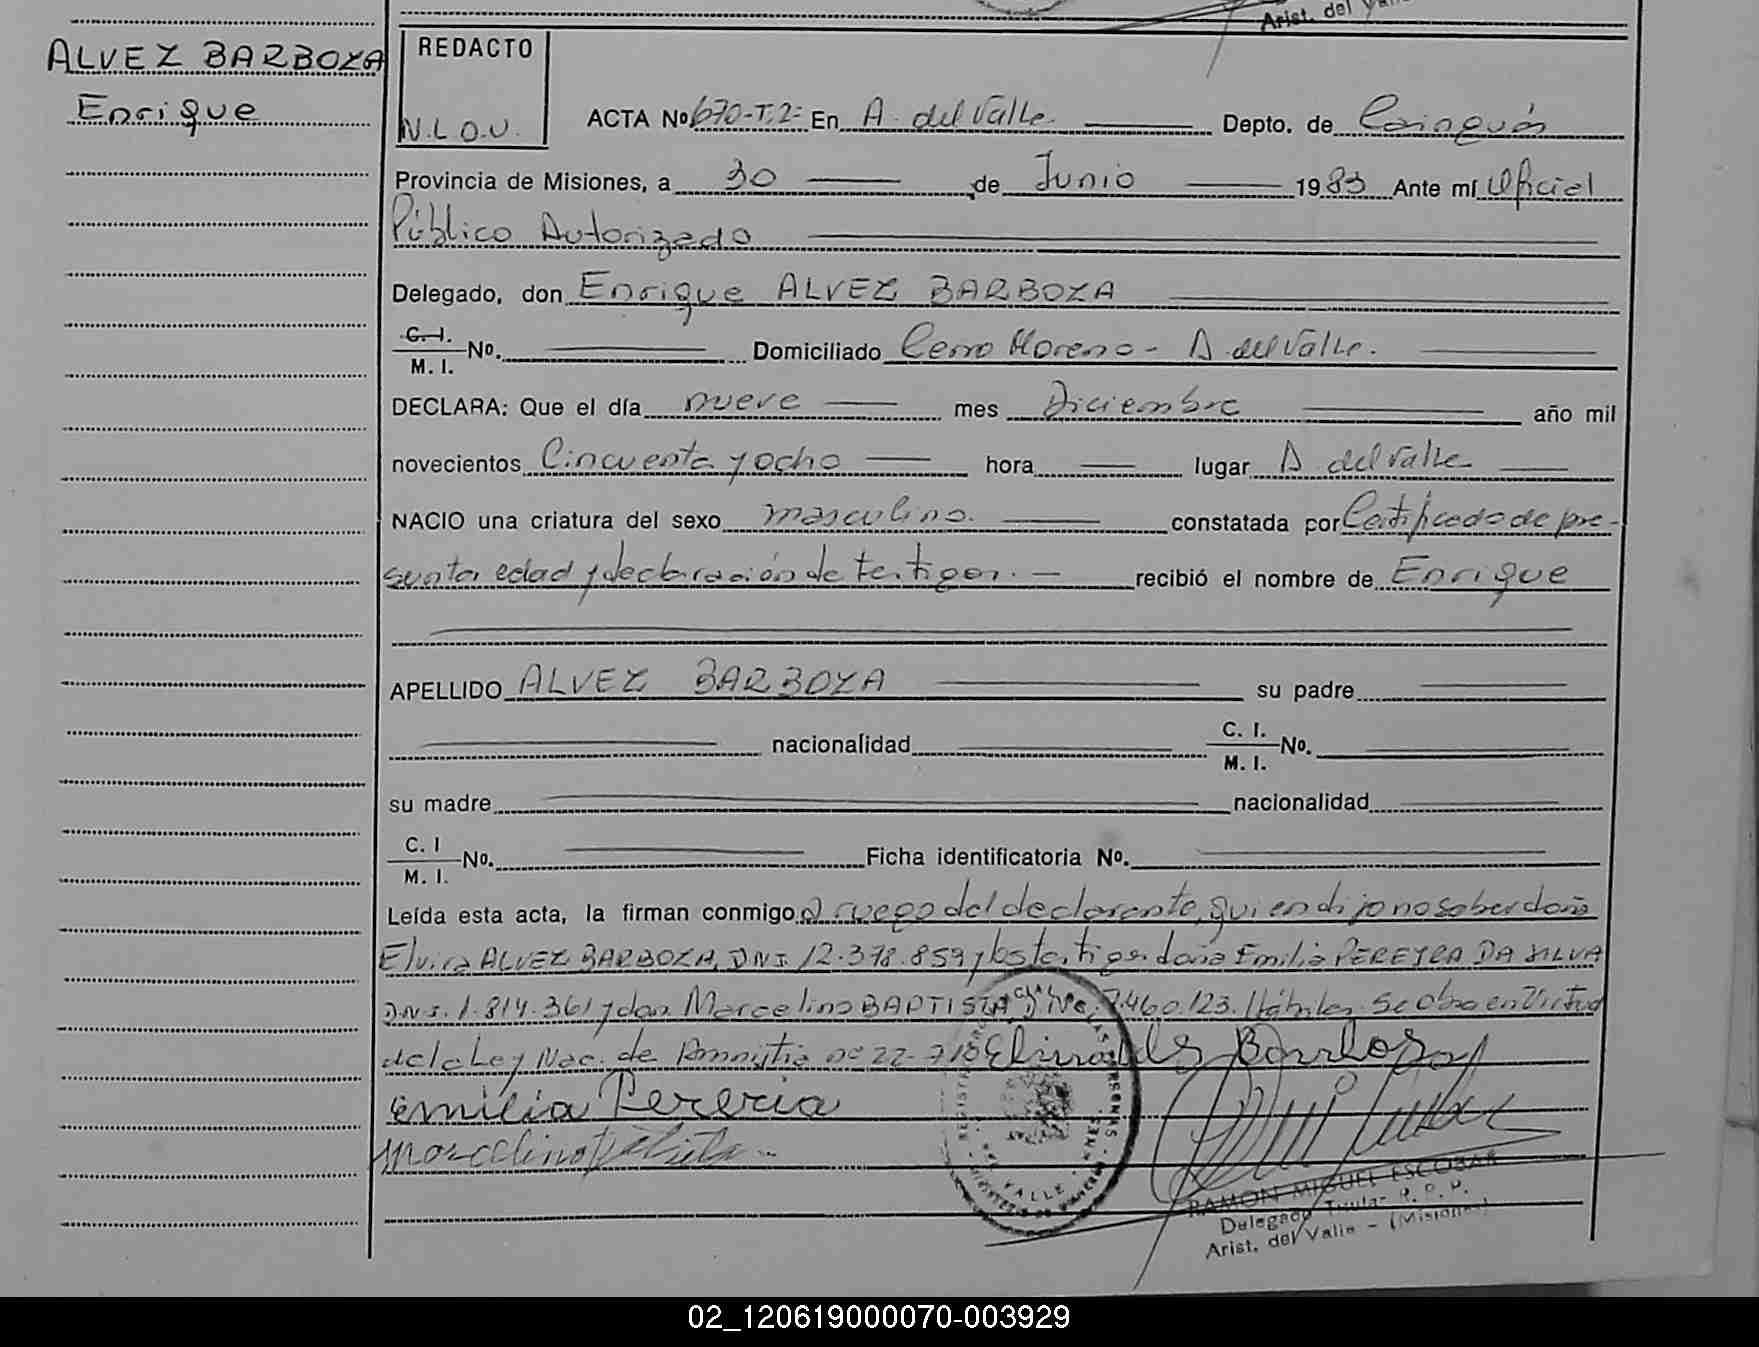 Arist. del Valle
ALVEZ BARBOZA
Enrique
REDACTO
N.L.O.U.
ACTA Nº 670-T.2- En A. del Valle Depto. de Cainguás
Provincia de Misiones, a 30 de Junio 1983 Ante mí Oficial
Público Autorizado
Delegado, don Enrique ALVEZ BARBOZA
C. I. M. I. No. Domiciliado Cerro Moreno - A. del Valle.
DECLARA: Que el día nueve mes Diciembre año mil
novecientos Cincuenta y ocho hora lugar A. del Valle
NACIO una criatura del sexo masculino. constatada por Certificado de pre-
sunta edad y declaración de testigos. recibió el nombre de Enrique
APELLIDO ALVEZ BARBOZA su padre
nacionalidad C. I. M. I. No.
su madre nacionalidad
C. I M. I. No. Ficha identificatoria No.
Leída esta acta, la firman conmigo a ruego del declarante, quien dijo no saber doña
Elvira ALVEZ BARBOZA, DNI. 12.378.859 y los testigos doña Emilia PEREYRA DA SILVA
DNI. 1.814.361 y don Marcelino BAPTISTA 7.460.123. Hábiles. Se obra en Virtud
de la Ley Nac. de Amnistía nº 22-
Barbosa
Emilia Pereria
Marcelino
RAMON MIGUEL ESCOBAR
Delegado Titular R. P. P.
Arist. del Valle - (Misiones)
02_120619000070-003929